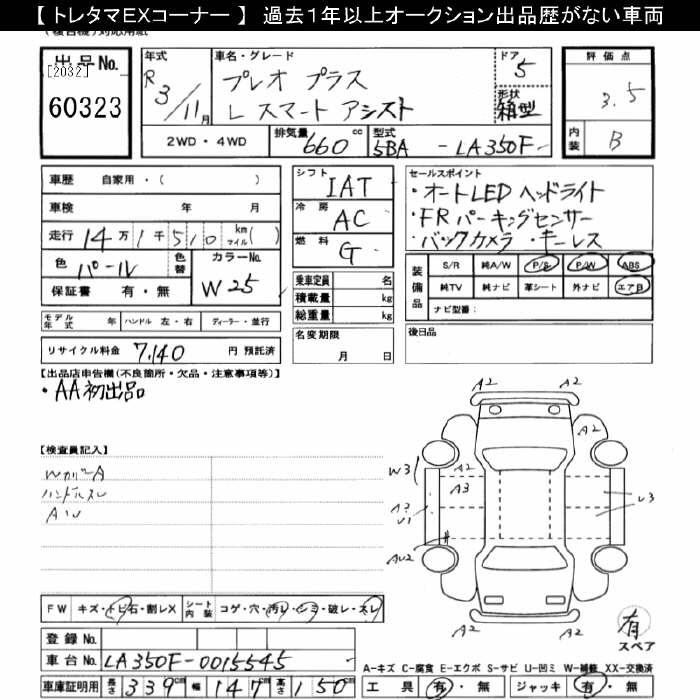 【 トレタマEXコーナー 】 過去1年以上オークション出品歴がない車両
出品No.
[2032]
60323
年式
R 3/11月
車名・グレード
プレオ プラス
L スマート アシスト
ドア
5
形状
箱型
評価点
3.5
内装
B
2WD・4WD
排気量 660 cc
型式 5BA - LA350F-
車歴 自家用・( )
車検 年 月
走行 14万1千510 km マイル( )
色 パール
色替
カラーNo.
W25
保証書 有・無
シフト IAT
冷房 AC
燃料 G
乗車定員 名
積載量 kg
総重量 kg
名変期限
月 日
セールスポイント
・オートLEDヘッドライト
・FRパーキングセンサー
・バックカメラ ・キーレス
装備品
S/R 純A/W P/S P/W ABS
純TV 純ナビ 革シート 外ナビ エアB
ナビ型番:
後日品
モデル年式 年 ハンドル 左・右 ディーラー・並行
リサイクル料金 7,140 円 預託済
【出品店申告欄(不良箇所・欠品・注意事項等)】
・AA初出品
【検査員記入】
WカバーA
ハンドルスレ
A2 A2
A2
W3 A2
A3
U3
U1
AU2
A2 A2
有
スペア
FW キズ・トビ石・割レX シート内装 コゲ・穴・汚レ・シミ・破レ・スレ
登録No.
車台No. LA350F-0015545
車庫証明用 長さ 339cm 幅 147cm 高さ 150cm
A-キズ C-腐食 E-エクボ S-サビ U-凹ミ W-補修 XX-交換済
工具 有・無 ジャッキ 有・無